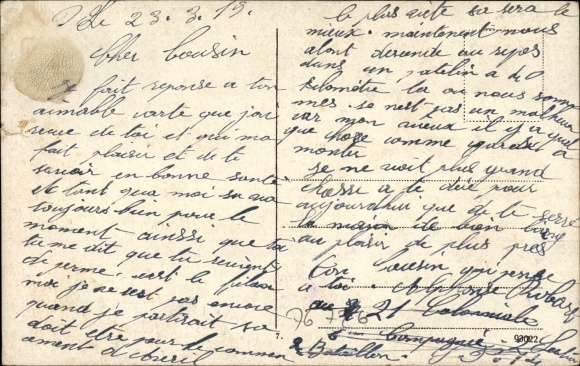 Le 23.3.19.
Cher Cousin
Je fait reponse a ton
aimable carte que j'ai
reçue de toi et qui ma
fait plaisir et de te
savoir en bonne santé
et tant qua moi sa va
toujours bien pour le
moment ainssi que toi
tu me dit que tu revient
de perme,
moi je ne sest pas encore
quand je partirait sa
doit etre pour le commen
cement d'Avril
le plus vite sa sera le
mieux. maintenant nous
alont descendre au repos
dans un patelin a 40
kilomètre la ou nous somm
mes se nest pas un malheur
car mon vieux il y a quel
que chose comme gardes a
monter
je ne voit plus grand
chosse a te dire pour
aujourdhui que de te serré
la main de bien long
au plaisir de plus pres
Ton cousin qui pense
a toi. Antoine Robert
21 Coloniale
6 em Compagnie
2 Bataillon.
7.
93022